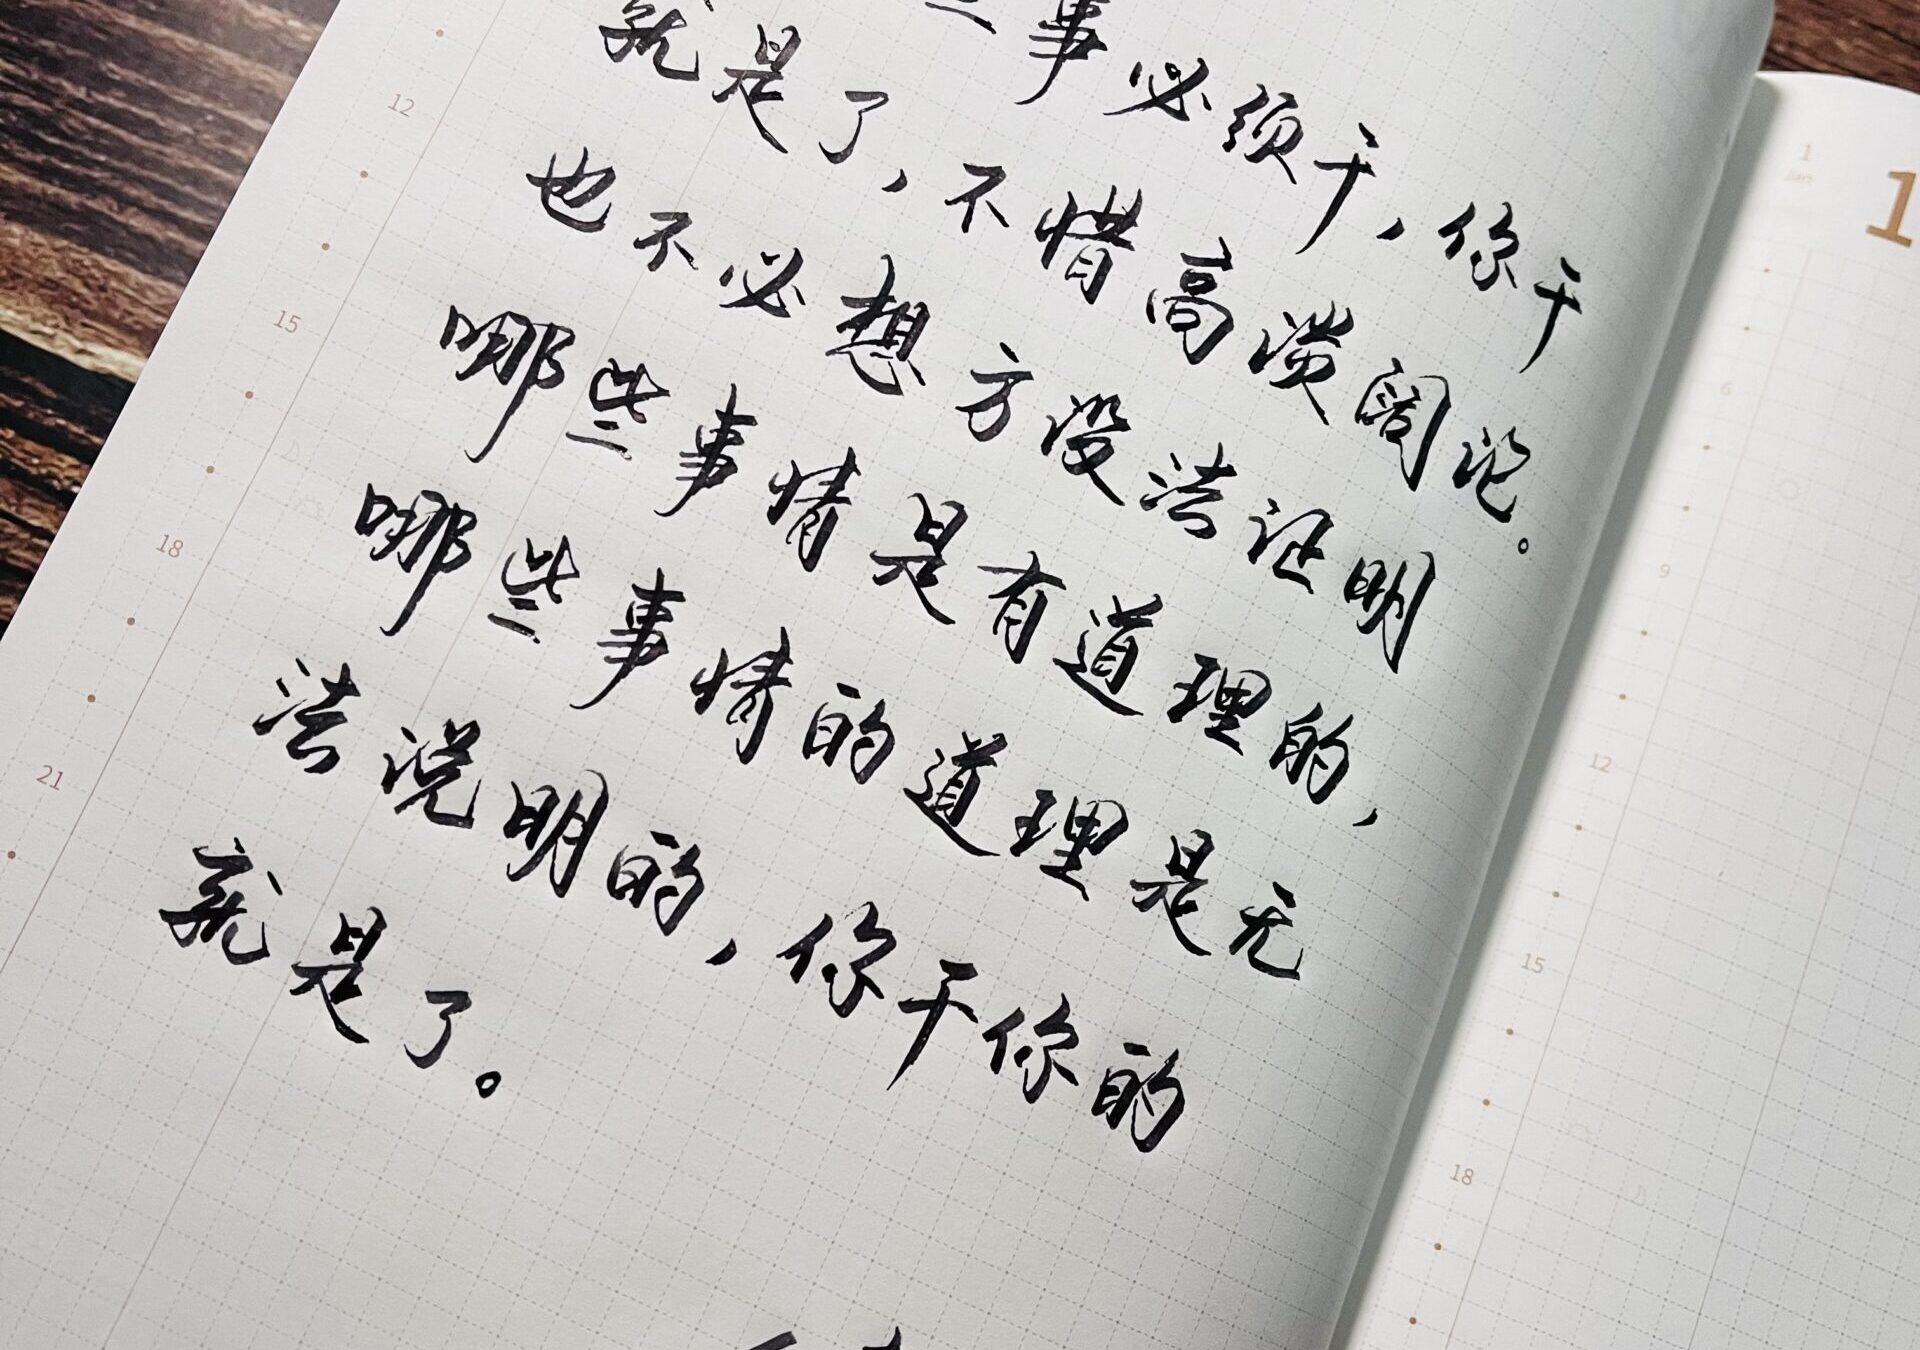 些事必须干，你干
就是了，不惜高谈阔论。
也不必想方设法证明
哪些事情是有道理的，
哪些事情的道理是无
法说明的，你干你的
就是了。
12
15
18
21
1
1
Jan
6
9
12
15
18